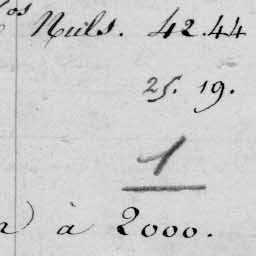 os Nuls. 42.44
25. 19.
1
à 2000.